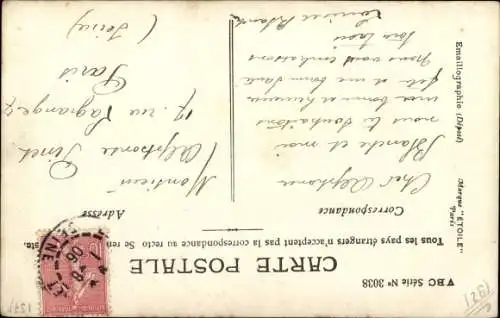 CARTE POSTALE
Tous les pays étrangers n'acceptent pas la correspondance au recto Se ren
ste.
Correspondance
Adresse
Cher Alphonse
Blanche et moi
nous te souhaitons
une bonne et heureuse
fête et une bonne santé
nous vous embrassons
tous trois
Monsieur
Alphonse Pinet
17 rue Lagrange
Paris
ABC Série No 3038
Emaillographie (Déposé)
Marque "ETOILE"
Paris
EINE
06